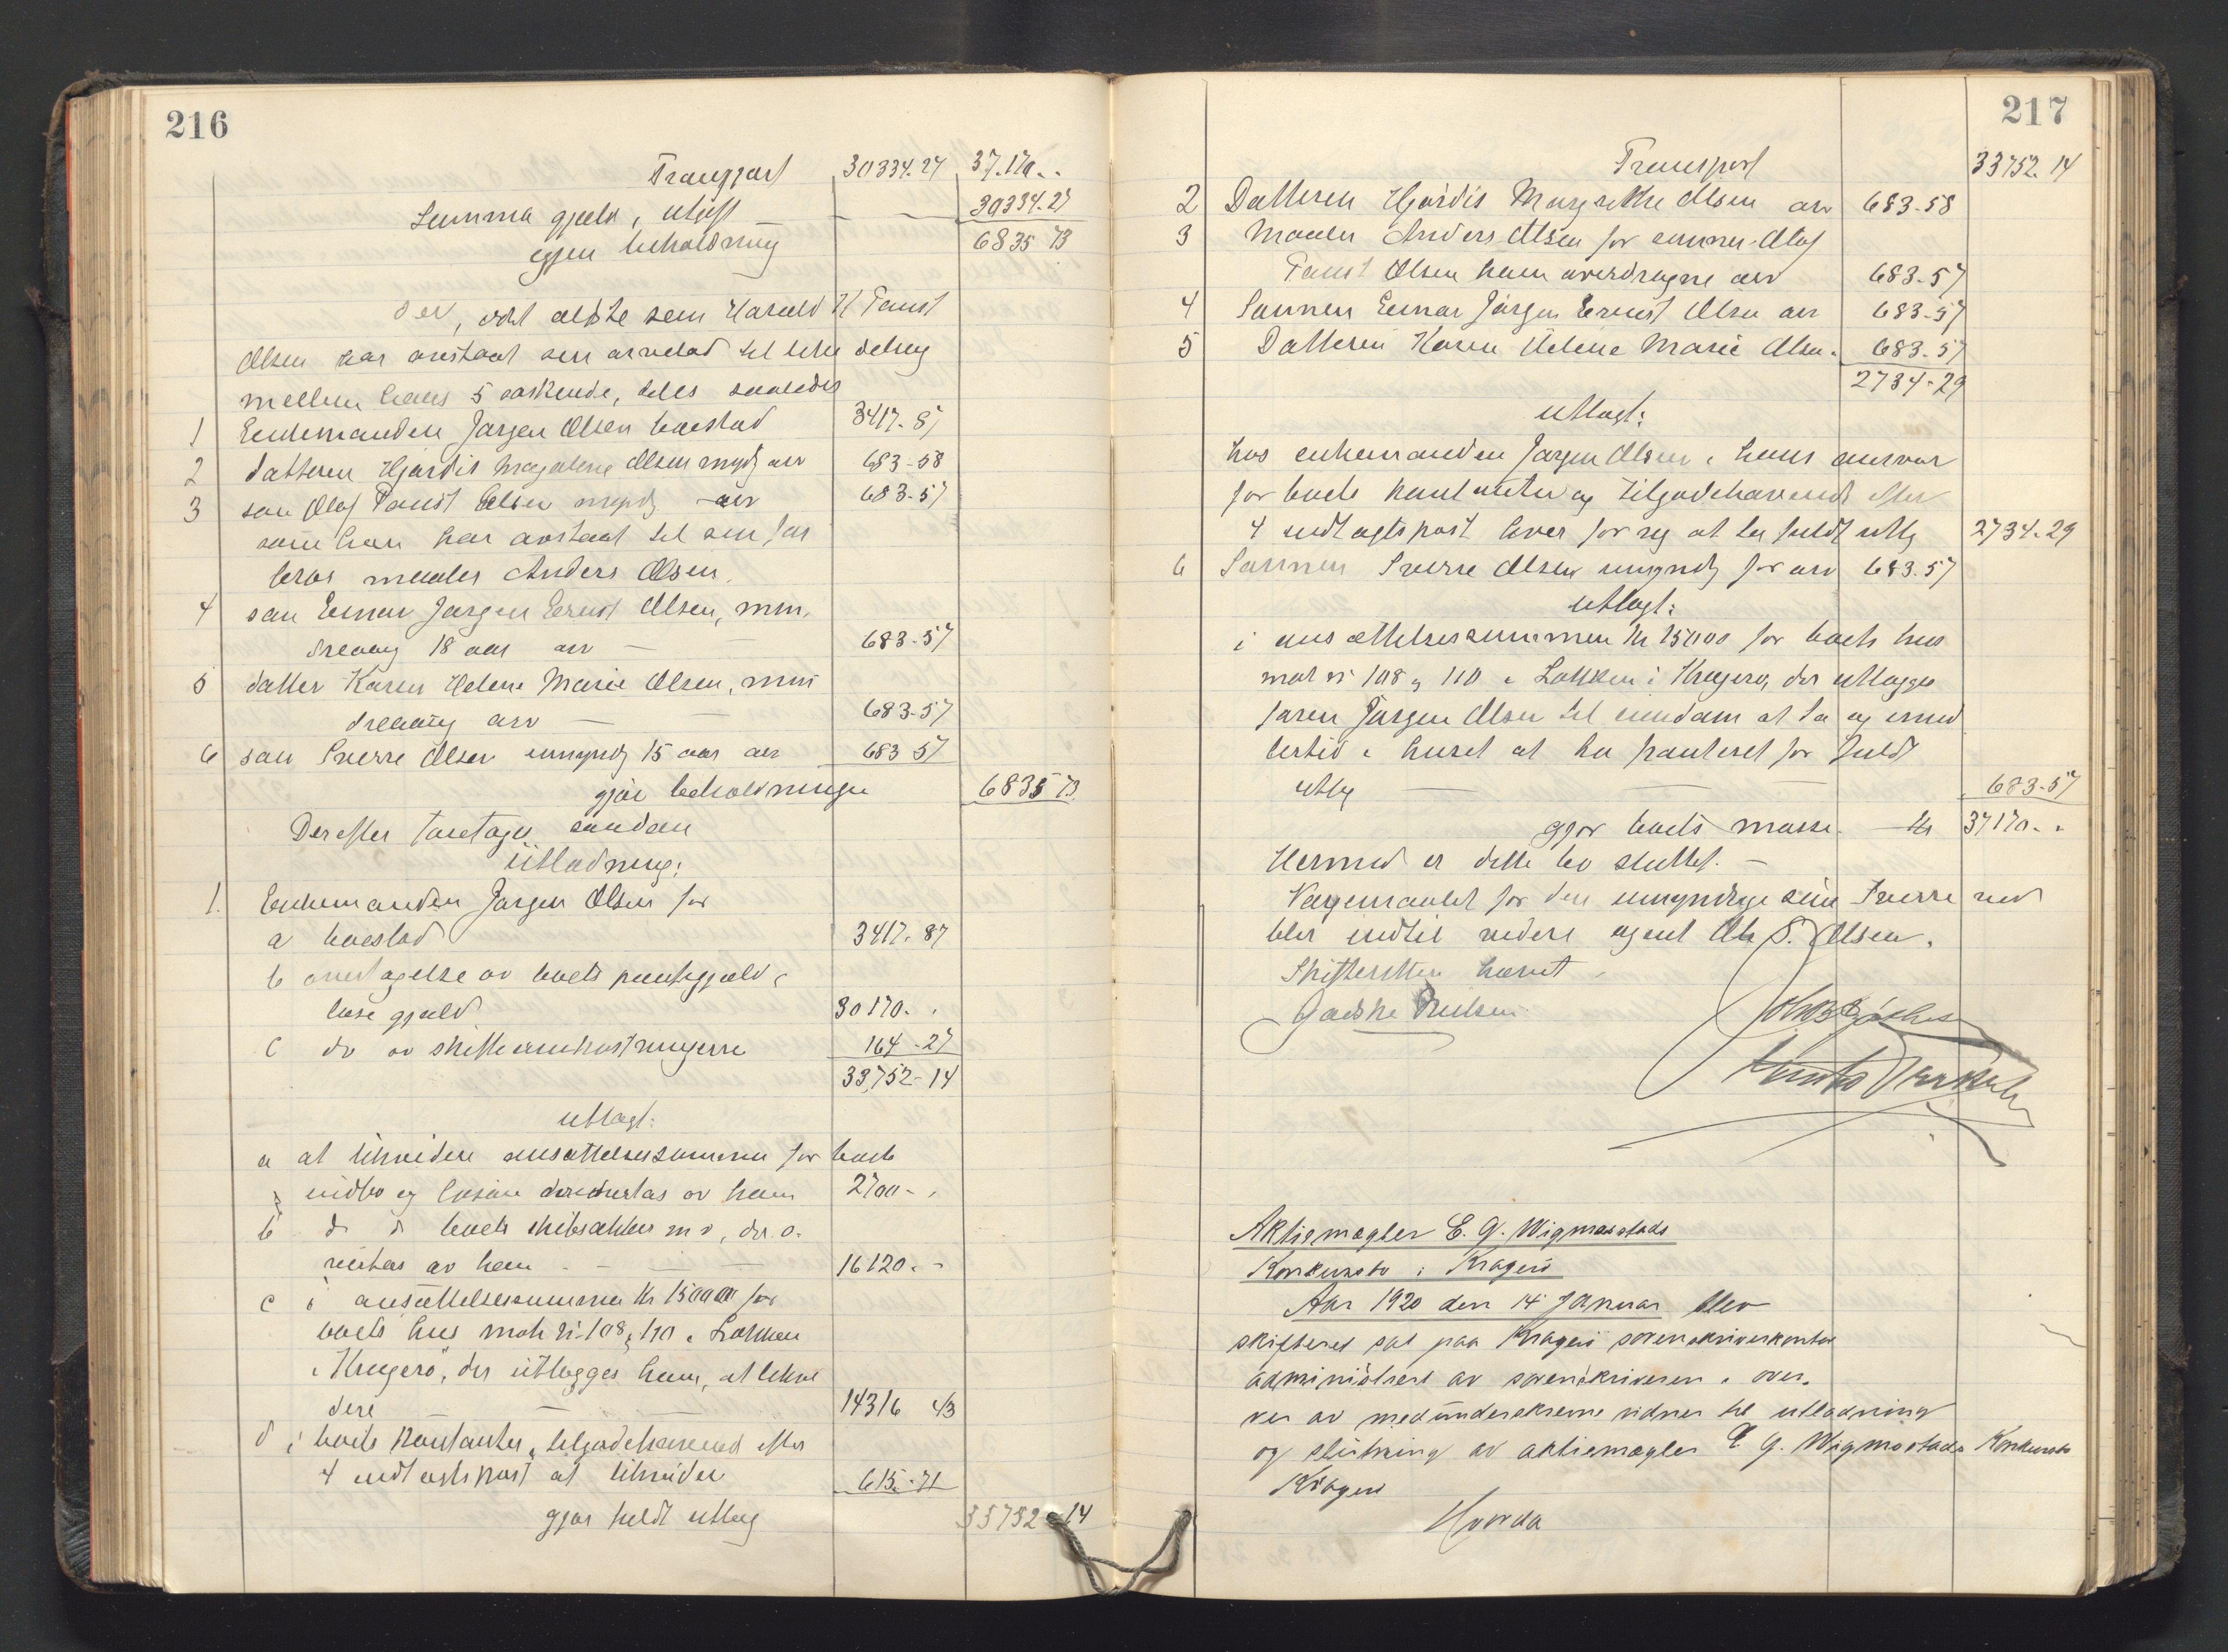 216
Transport 30334.27 37.170..
Summa gjæld & utgift 30334.27
igjen beholdning 6835 73
der, idet ældste søn Harald H Faust
Olsen har avstaat sin arvelod til like deling
mellem hans 5 søskende, deles saaledes
1 Enkemanden Jørgen Olsen boeslod 3417.87
2 datteren Hjørdis Magrethe Olsen myndg arv 683-58
3 søn Olaf Faust Olsen myndg arv 683-57
som han har avstaat til sin far
bror maaler Anders Olsen.
4 søn Einar Jørgen Ernst Olsen, min,
dreaarig 18 aar arv 683-57
5 datter Karen Helene Marie Olsen, min
dreaarig arv 683-57
6 søn Sverre Olsen umyndg 15 aar arv 683 57
gjør beholdningen 6835 73
Derefter foretages saadan
Utlodning:
1. Enkemanden Jørgen Olsen for
a boeslod 3417.87
b overtagelse av boets pantegjæld &
løse gjæld 30170..
c do av skifteomkostningerne 164-27
33,752-14
utlagt:
a at likvidere ansættelsessummen for boets
indbo og løsøre der overtas av ham 2700-.
b do do boets skibsaktier m v, der o-
vertas av ham 16120.-
c i ansættelsessummen Kr 15000 for
boets hus matr nr 108 & 110 i Løkken
i Kragerø, der utlægges ham, at likvi
dere 14316 43
d i boets kontanter & tilgodehavend efter
4 indtægtspost at likvidere 615.71
gjør fuldt utlæg 33752-14
217
Transport 33752.14
2 Datteren Hjørdis Magrethe Olsen arv 683-58
3 Maaler Anders Olsen for sønnen Olaf
Faust Olsen ham overdragne arv 683-57
4 Sønnen Einar Jørgen Ernst Olsen arv 683-57
5 Datteren Karen Helene Marie Olsen. 683-57
2734-29
utlagt:
hos enkemanden Jørgen Olsen i hans ansvar
for boets kontanter og tilgodehavende efter
4 indtægtspost hver for sig at ta fuldt utlg 2734.29
6 Sønnen Sverre Olsen umyndg for arv 683.57
utlagt:
i ansættelsessummen Kr 15000 for boets hus
matr nr 108 & 110 i Løkken i Kragerø, der utlægges
faren Jørgen Olsen til eiendom at ta og imid
lertid i huset at ha panteret for fuldt
utlg 683-57
gjør boets masse Kr 37170..
Hermed er dette bo sluttet. -
Værgemaalet for den umyndige søn Sverre ved
blir indtil videre agent Ole S. Olsen.
Skifteretten hævet
Aktiemægler E. G. Wigmostads
Konkursbo i Kragerø
Aar 1920 den 14 Januar blev
skifteret sat paa Kragerø sorenskriverkontor
administrert av sorenskriveren i over-
vær av medunderskrevne vidner til utlodning
og slutning av aktiemægler E G. Wigmostads Konkursbo
Kragerø
Hvorda